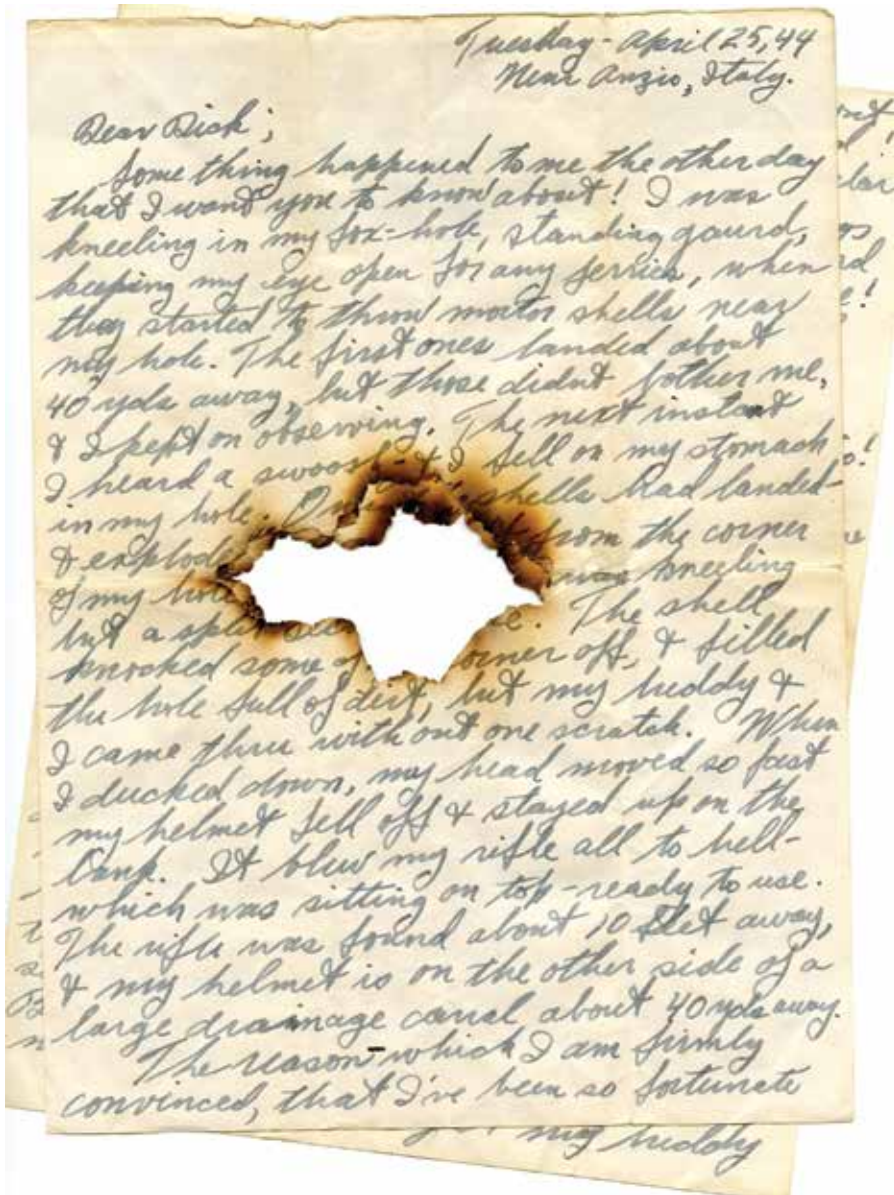 Tuesday - April 25, 44
Near Anzio, Italy.
Dear Dick;
Some thing happened to me the other day
that I want you to know about! I was
kneeling in my fox-hole, standing gaurd,
keeping my eye open for any jerries, when
they started to throw mortor shells near
my hole. The first ones landed about
40 yds away, but those didnt bother me,
& I kept on observing. The next instant
I heard a swoosh - & I fell on my stomach
in my hole. shells had landed -
& explode from the corner
of my hole was kneeling
but a split The shell
knocked some corner off, & filled
the hole full of dirt, but my buddy &
I came thru with out one scratch. When
I ducked down, my head moved so fast
my helmet fell off & stayed up on the
bank. It blew my rifle all to hell -
which was sitting on top - ready to use.
The rifle was found about 10 feet away,
& my helmet is on the other side of a
large drainage canal about 40 yds away.
The reason - which I am firmly
convinced, that I've been so fortunate
my buddy